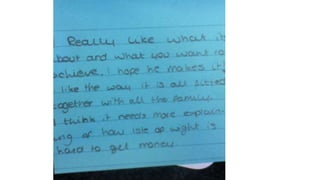 Really like what it
about and what you want to
achieve. I hope he makes it,
like the way it is all fitted
together with all the family.
I think it needs more explain-
ing of how isle of wight is
hard to get money.